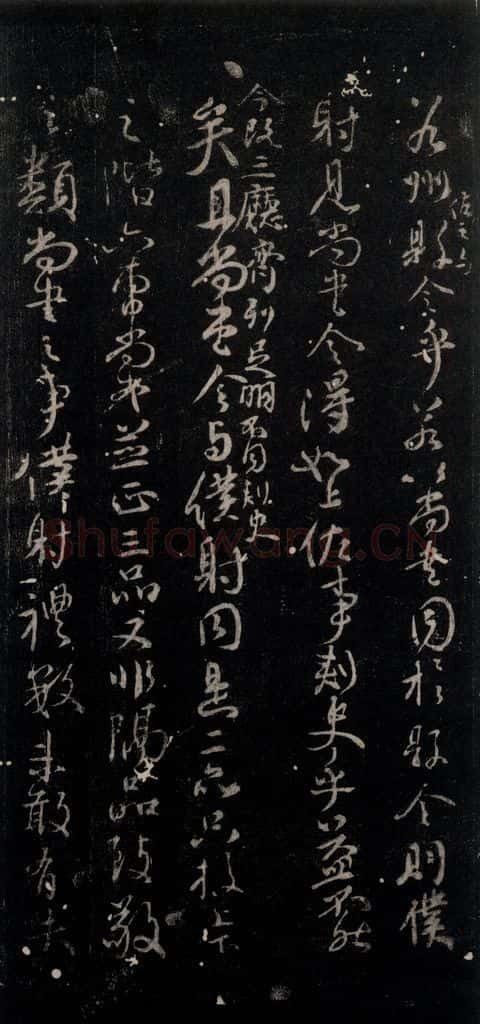 若州縣令乎若以尚書同於縣令則僕
佐之与
射見尚書令得如上佐事刺史乎益不然
今既三廳齊列足明不同刺史
矣且尚書令与僕射同是二品只校上下
之階六曹尚書並正三品又非隔品致敬
之類尚書之事僕射禮數未敢有失
Shufawang.CN